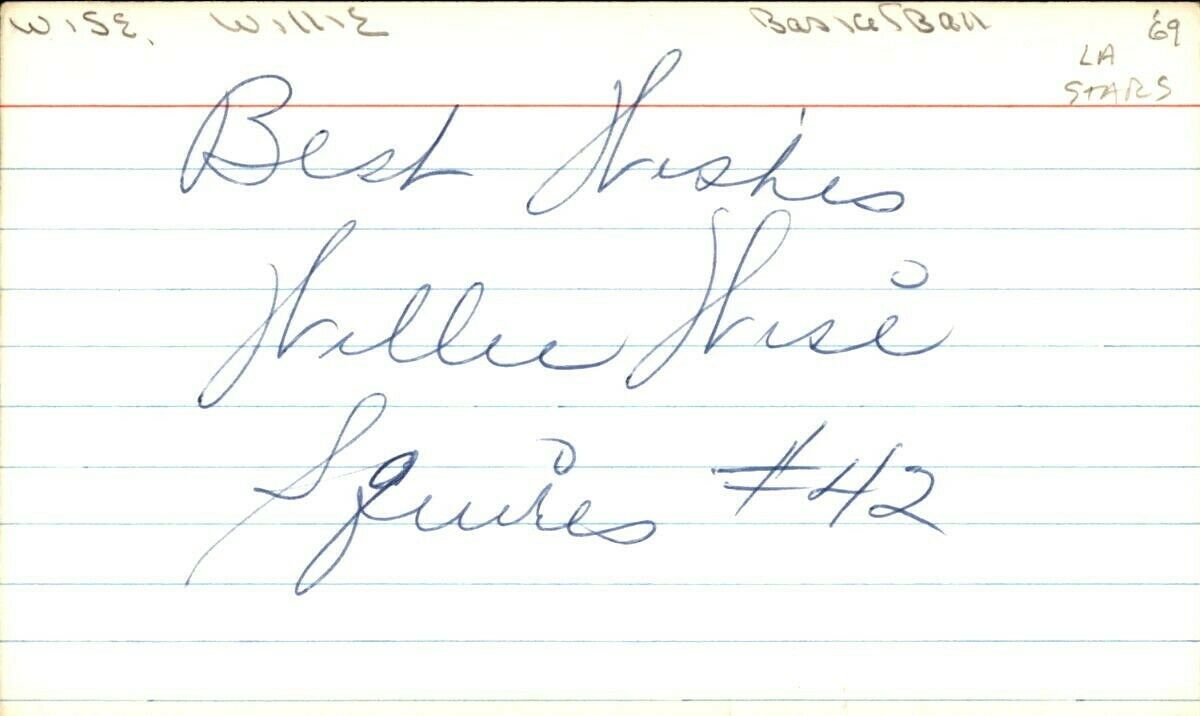 WISE, WILLIE BasketBall '69
LA
STARS
Best Wishes
Willie Wise
Squires #42